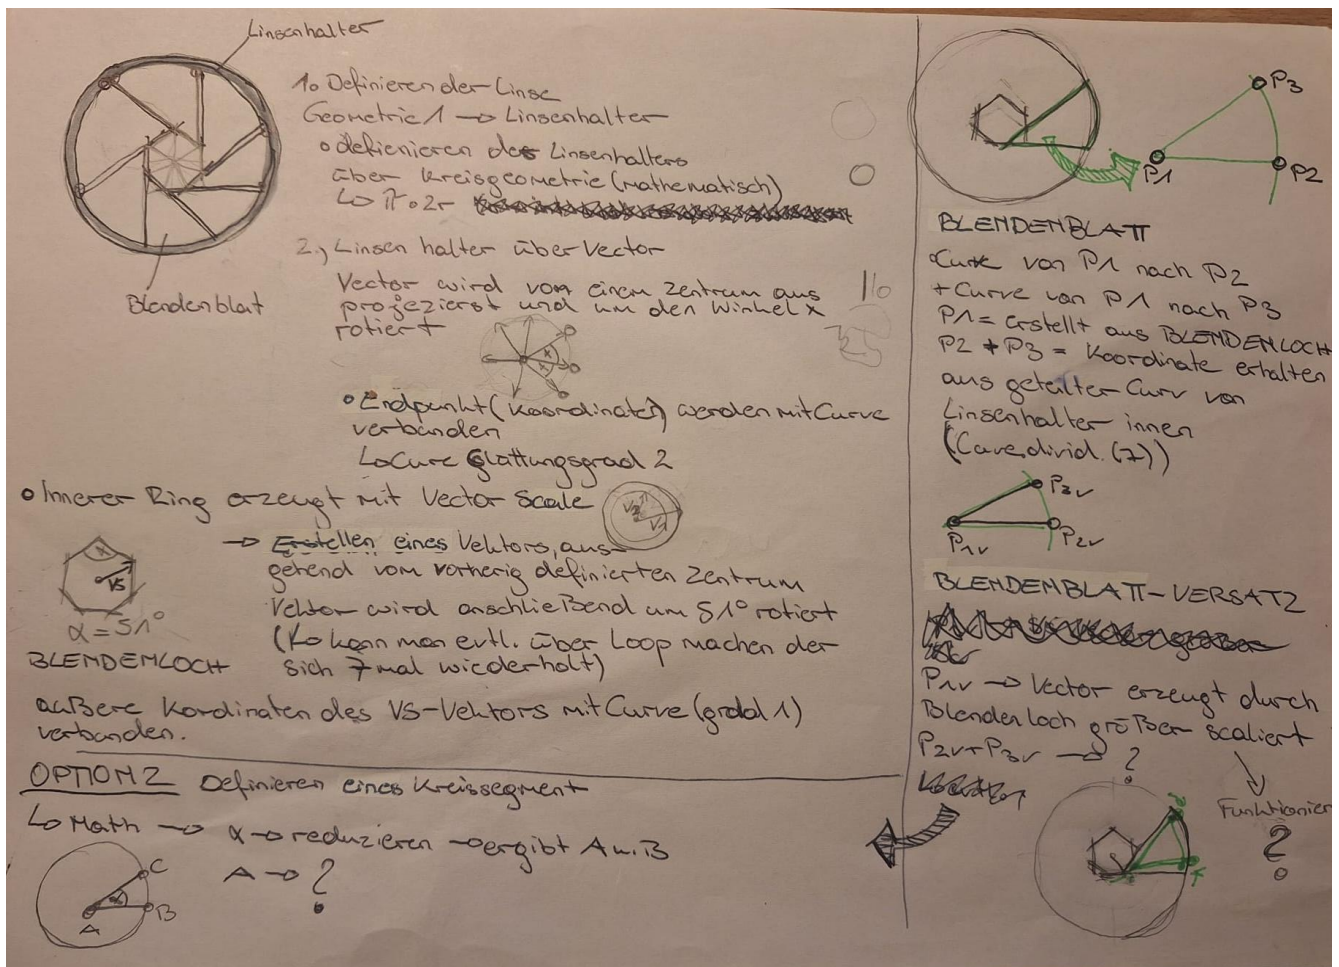 Linsenhalter
1. Definieren der Linse
Geometrie 1 → Linsenhalter
• defienieren des Linsenhalters
über Kreisgeometrie (mathematisch)
↳ π · 2r
2., Linsen halter über Vector
Vector wird von einem Zentrum aus
projezierst und um den Winkel x
rotiert
x
x
• Endpunkt (Koordinaten) werden mit Curve
verbanden
↳ Cure Glättungsgrad 2
Blendenblatt
• Innerer Ring erzeugt mit Vector Scale
V2
V1
→ Erstellen eines Vektors, aus-
gehend vom vorherig definierten Zentrum
Vektor wird anschließend um 51° rotiert
(↳ kann man evtl. über Loop machen der
sich 7 mal wiederholt)
α
VS
α = 51°
BLENDENLOCH
außere Kordinaten des VS-Vektors mit Curve (gradal 1)
verbanden.
OPTION 2 Definieren eines Kreissegment
↳ Math → α → reduzieren → ergibt A u. B
A → ?
C
α
B
A
P3
P1
P2
BLENDENBLATT
• Curve von P1 nach P2
+ Curve von P1 nach P3
P1 = erstellt aus BLENDENLOCH
P2 + P3 = Koordinate erhalten
aus geteilter Curv von
Linsenhalter innen
(Curve divid. (7))
P3v
P1v
P2v
BLENDENBLATT-VERSATZ
P1v → Vector erzeugt durch
Blendenloch größer scaliert
P2v + P3v → ?
Funktionier
?